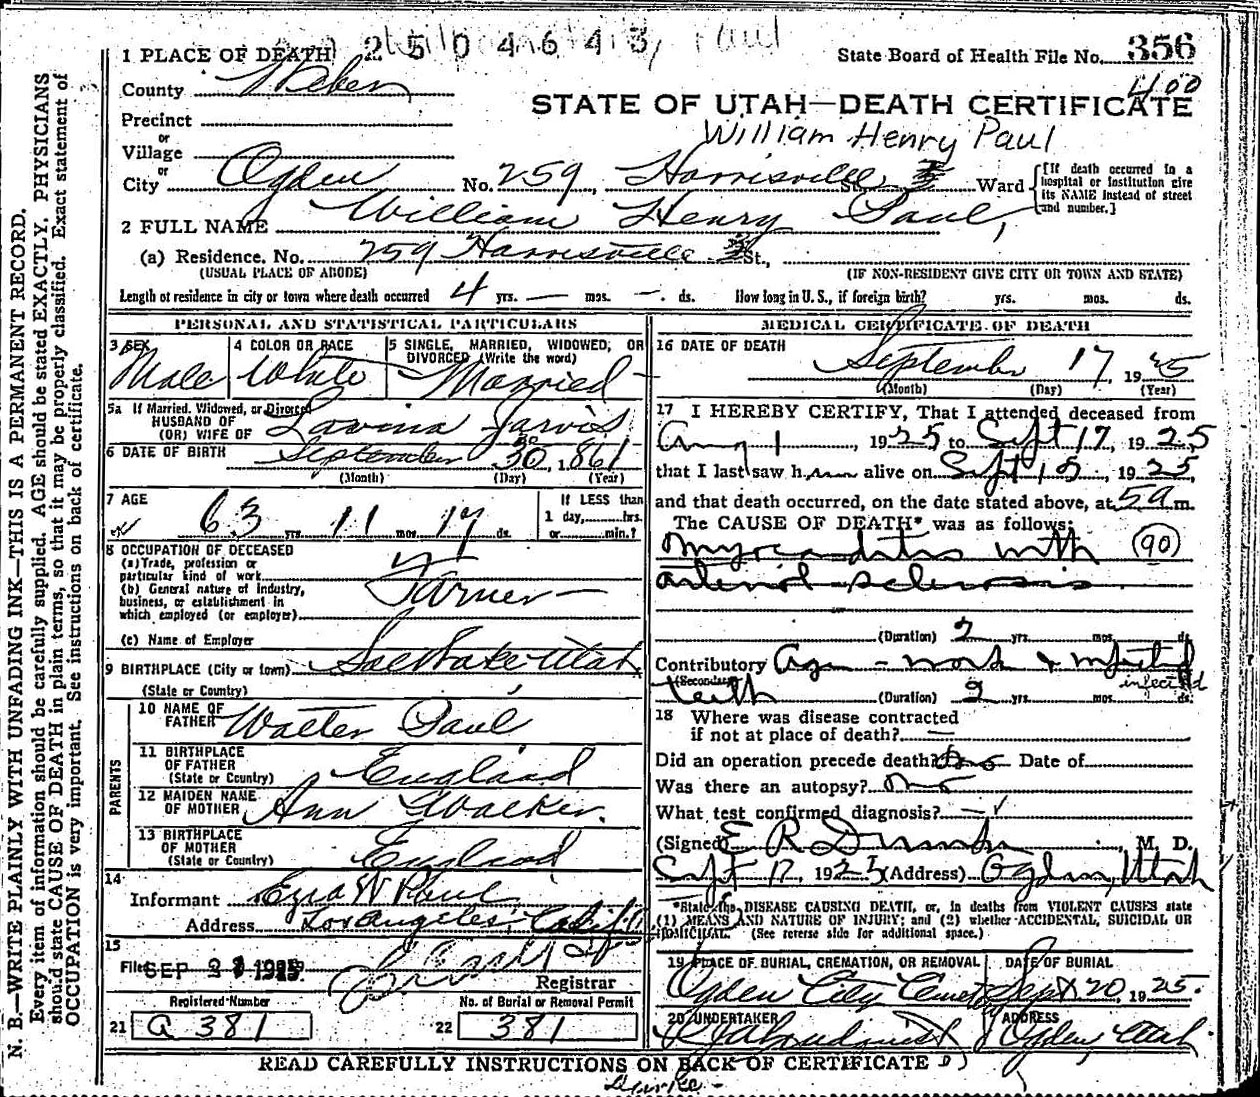 2504643 Paul
1 PLACE OF DEATH
State Board of Health File No. 356
County Weber
400
STATE OF UTAH—DEATH CERTIFICATE
Precinct
William Henry Paul
or
Village
or
City Ogden No. 259, Harrisville St., Ward
[If death occurred in a hospital or institution give its NAME instead of street and number.]
2 FULL NAME William Henry Paul,
(a) Residence. No. 259 Harrisville St.,
(USUAL PLACE OF ABODE) (IF NON-RESIDENT GIVE CITY OR TOWN AND STATE)
Length of residence in city or town where death occurred 4 yrs. — mos. — ds. How long in U. S., if foreign birth? yrs. mos. ds.
PERSONAL AND STATISTICAL PARTICULARS
3 SEX 4 COLOR OR RACE 5 SINGLE, MARRIED, WIDOWED, OR DIVORCED (Write the word)
Male White Married
5a If Married, Widowed, or Divorced
HUSBAND OF
(OR) WIFE OF Lavina Jarvis
6 DATE OF BIRTH September 30, 1861
(Month) (Day) (Year)
7 AGE If LESS than
63 yrs. 11 mos. 17 ds. 1 day,......hrs.
or......min.?
8 OCCUPATION OF DECEASED
(a) Trade, profession or
particular kind of work
(b) General nature of Industry,
business, or establishment in
which employed (or employer) Farmer
(c) Name of Employer
9 BIRTHPLACE (City or town) Salt Lake Utah
(State or Country)
PARENTS
10 NAME OF FATHER Walter Paul
11 BIRTHPLACE OF FATHER (State or Country) England
12 MAIDEN NAME OF MOTHER Ann Walker.
13 BIRTHPLACE OF MOTHER (State or Country) England
14
Informant Ezra W Paul
Address Los Angeles, Calif
15
Filed SEP 1925
Registrar
Registered Number No. of Burial or Removal Permit
21 a 381 22 381
MEDICAL CERTIFICATE OF DEATH
16 DATE OF DEATH
September 17, 1925
(Month) (Day) (Year)
17 I HEREBY CERTIFY, That I attended deceased from
Aug 1, 1925 to Sept 17, 1925
that I last saw him alive on Sept 15, 1925,
and that death occurred, on the date stated above, at 5 a m.
The CAUSE OF DEATH* was as follows:
Myocarditis with (90)
arterial sclerosis
(Duration) 2 yrs. mos. ds.
Contributory Age - work & infected
(Secondary) infected
teeth (Duration) 2 yrs. mos. ds.
18 Where was disease contracted
if not at place of death? —
Did an operation precede death? no Date of
Was there an autopsy? no
What test confirmed diagnosis? —
(Signed) E R, M. D.
Sept 17, 1925 (Address) Ogden, Utah
*State the DISEASE CAUSING DEATH, or, in deaths from VIOLENT CAUSES state
(1) MEANS AND NATURE OF INJURY; and (2) whether ACCIDENTAL, SUICIDAL OR
HOMICIDAL. (See reverse side for additional space.)
19 PLACE OF BURIAL, CREMATION, OR REMOVAL DATE OF BURIAL
Ogden City Cemetery Sept 20, 1925.
20 UNDERTAKER ADDRESS
Ogden, Utah
READ CAREFULLY INSTRUCTIONS ON BACK OF CERTIFICATE
N. B.—WRITE PLAINLY WITH UNFADING INK—THIS IS A PERMANENT RECORD.
Every item of information should be carefully supplied. AGE should be stated EXACTLY. PHYSICIANS
should state CAUSE OF DEATH in plain terms, so that it may be properly classified. Exact statement of
OCCUPATION is very important. See instructions on back of certificate.